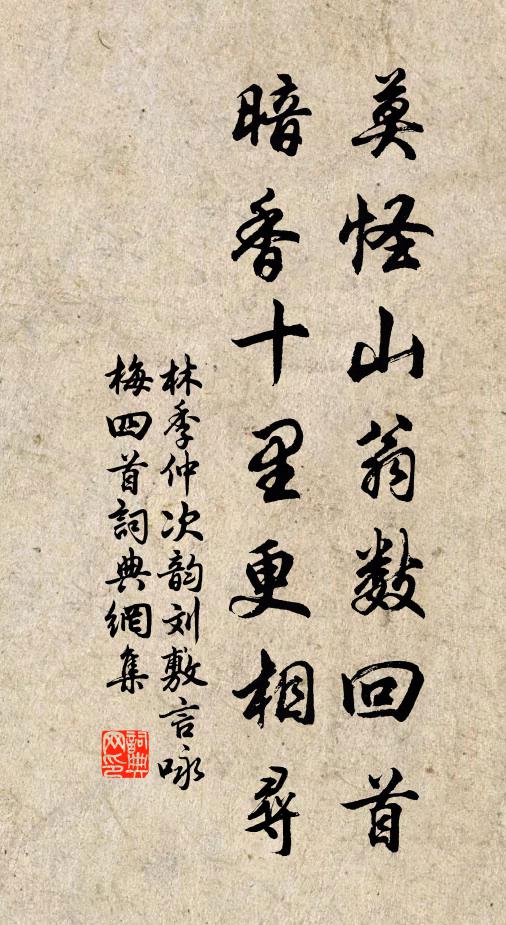 莫怪山翁数回首
暗香十里更相尋
林季仲次韵刘敷言咏
梅四首詞典網集
詞典網印